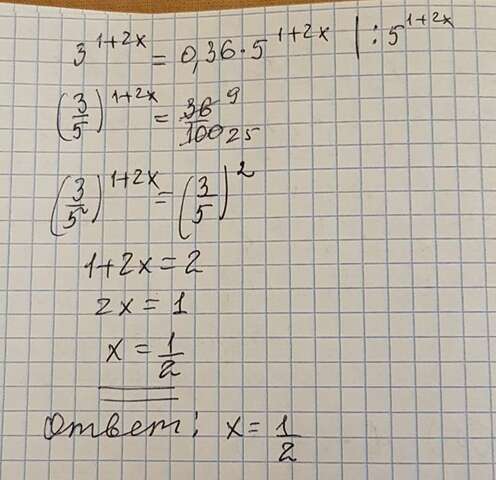 3^{1+2x} = 0,36 · 5^{1+2x} | : 5^{1+2x}
(3/5)^{1+2x} = 36/100 9/25
(3/5)^{1+2x} = (3/5)^2
1+2x = 2
2x = 1
x = 1/2
Ответ: x = 1/2